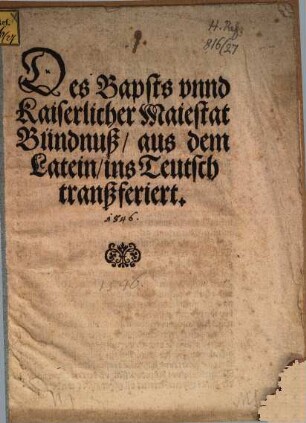 H. Ref.
816/27
Des Bapsts vnnd
Kaiserlicher Maiestat
Bündnuß/ aus dem
Latein/ ins Teutsch
tranßferiert.
1546.